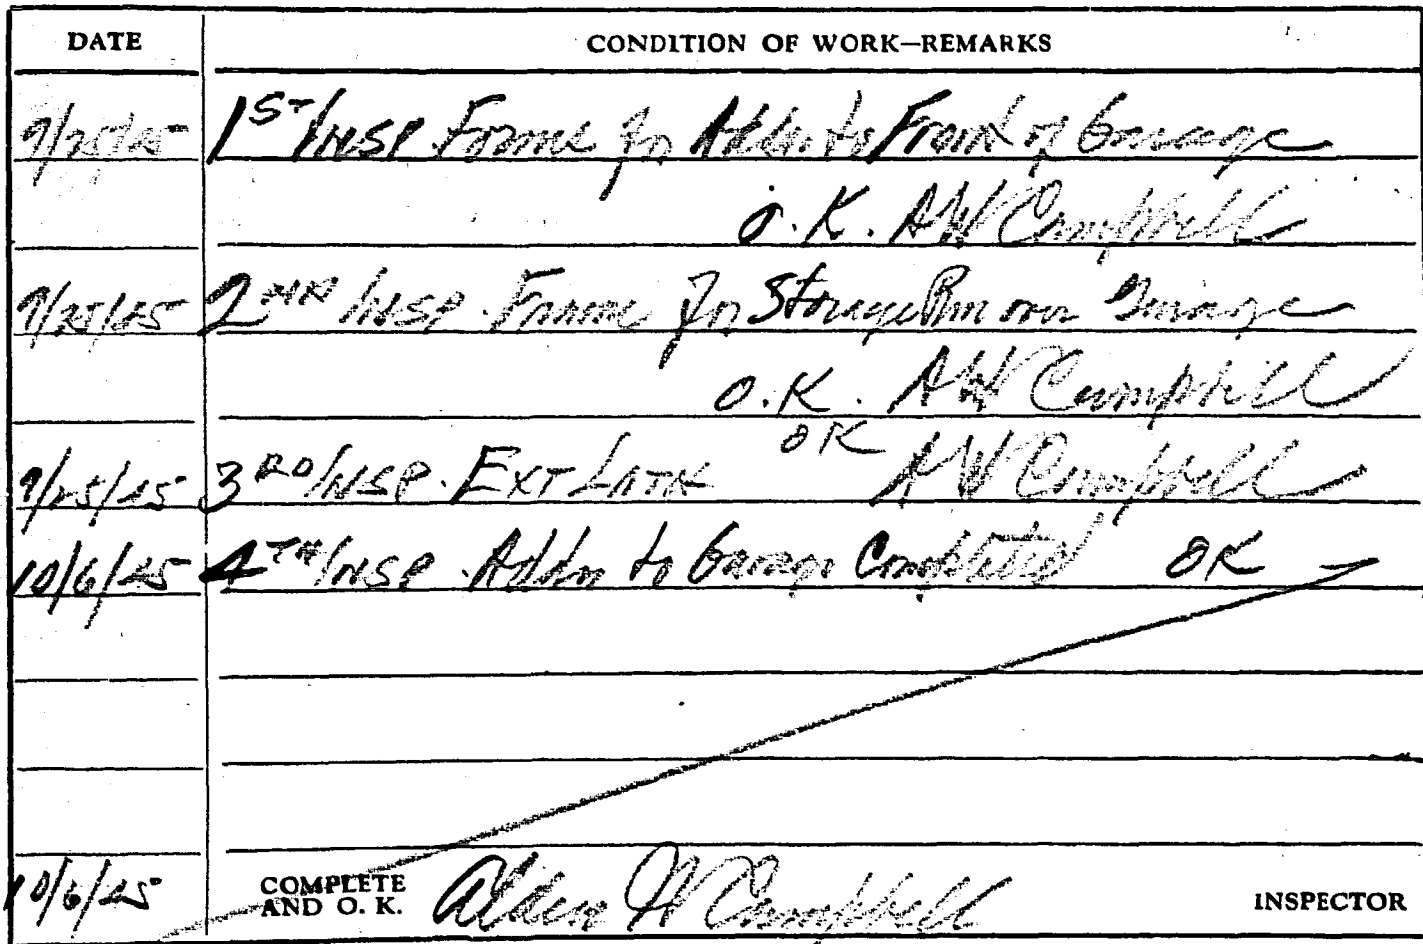 DATE CONDITION OF WORK—REMARKS
9/25/45 1ST INSP Forms for Addn to Front of Garage
O.K. AW Campbell
9/25/45 2ND INSP. Frame for Storage Rm over Garage
O.K. AW Campbell
OK
9/25/45 3RD INSP. EXT LATH AW Campbell
10/6/45 4TH INSP. Addn to Garage Completed OK
10/6/45 COMPLETE AND O. K. Alden W Campbell INSPECTOR